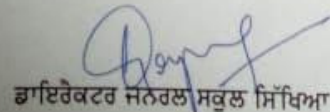 ਡਾਇਰੈਕਟਰ ਜਨਰਲ ਸਕੂਲ ਸਿੱਖਿਆ